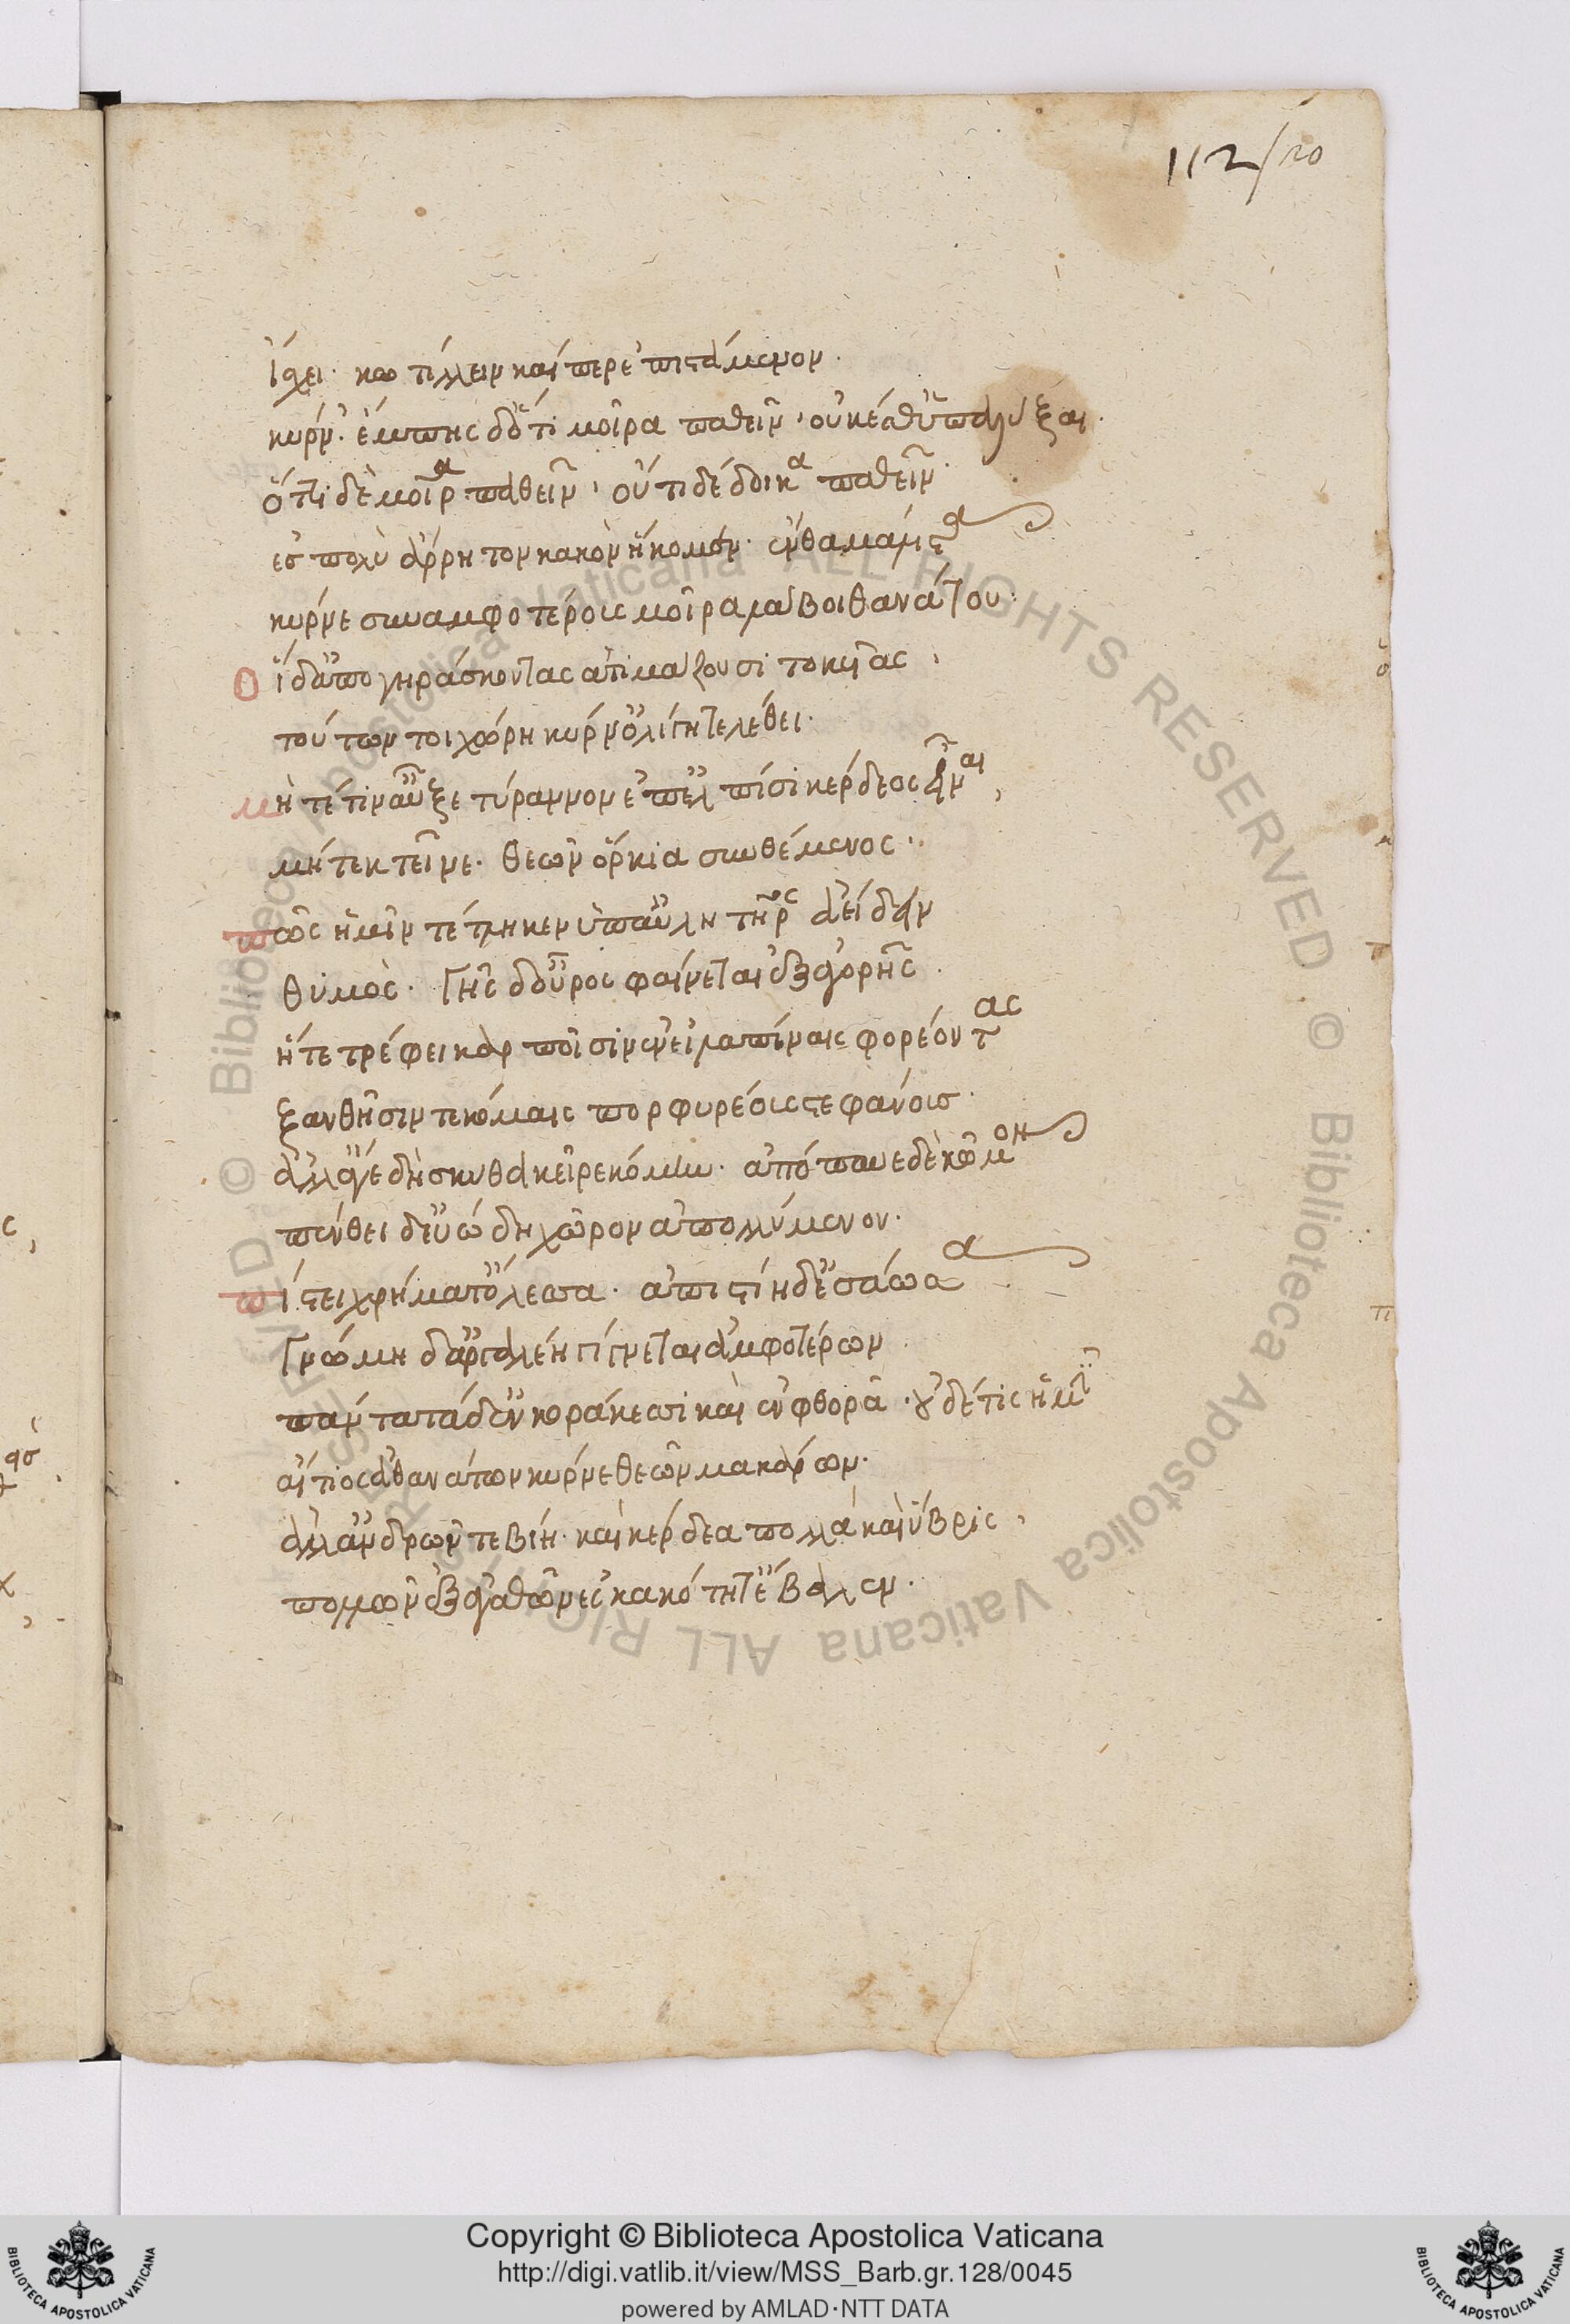 112/120
ἴσχει· κωτίλλειν καίπερ ἐπιστάμενον·
κύρν'· ἔμπης δ' ὅτι μοῖρα παθεῖν, οὐκ ἔσθ' ὑπαλύξαι·
ὅττι δὲ μοῖρα παθεῖν, οὔτι δέδοικα παθεῖν·
ἐς πολυάρρητον κακὸν ἥκομεν· ἔνθα μάλιστα
κύρνε συναμφοτέρους μοῖρα λάβοι θανάτου·
οἵ δ' ἀπογηράσκοντας ἀτιμάζουσι τοκῆας,
τούτων τοι χώρη κύρν' ὀλίγη τελέθει·
μήτέ τιν' αὖξε τύραννον ἐπ' ἐλπίσι κέρδεσιν εἶναι,
μήτε κτεῖνε· θεῶν ὅρκια συνθέμενος·
πῶς ἡμῖν τέτληκεν ὑπ' αὐλητῆρος ἀείδειν
θυμὸς· γῆς δ' οὖρος φαίνεται ἐξ ἀγορῆς·
ἥτε τρέφει καρποῖσιν ἐν εἰλαπίναις φορέοντας
ξανθῇσίν τε κόμαις πορφυρέους στεφάνους·
ἀλλ' ἄγε δὴ σκύθα κεῖρε κόμην· ἀπόπαυε δὲ κῶμον
πένθει δ' εὐώδη χῶρον ἀπολλύμενον·
πίστει χρήματ' ὄλεσσα· ἀπιστίη δ' ἐσάωσα
γνώμη δ' ἀργαλέη γίγνεται ἀμφοτέρων·
πάντα τάδ' ἐν κοράκεσσι καὶ ἐν φθορᾷ· οὐδέ τις ἡμῖν
αἴτιος ἀθανάτων κύρνε θεῶν μακάρων·
ἀλλ' ἀνδρῶν τε βίη· καὶ κέρδεα πολλὰ καὶ ὕβρις,
πολλῶν ἐξ ἀγαθῶν ἐς κακότητ' ἔβαλεν·
Copyright © Biblioteca Apostolica Vaticana
http://digi.vatlib.it/view/MSS_Barb.gr.128/0045
powered by AMLAD·NTT DATA